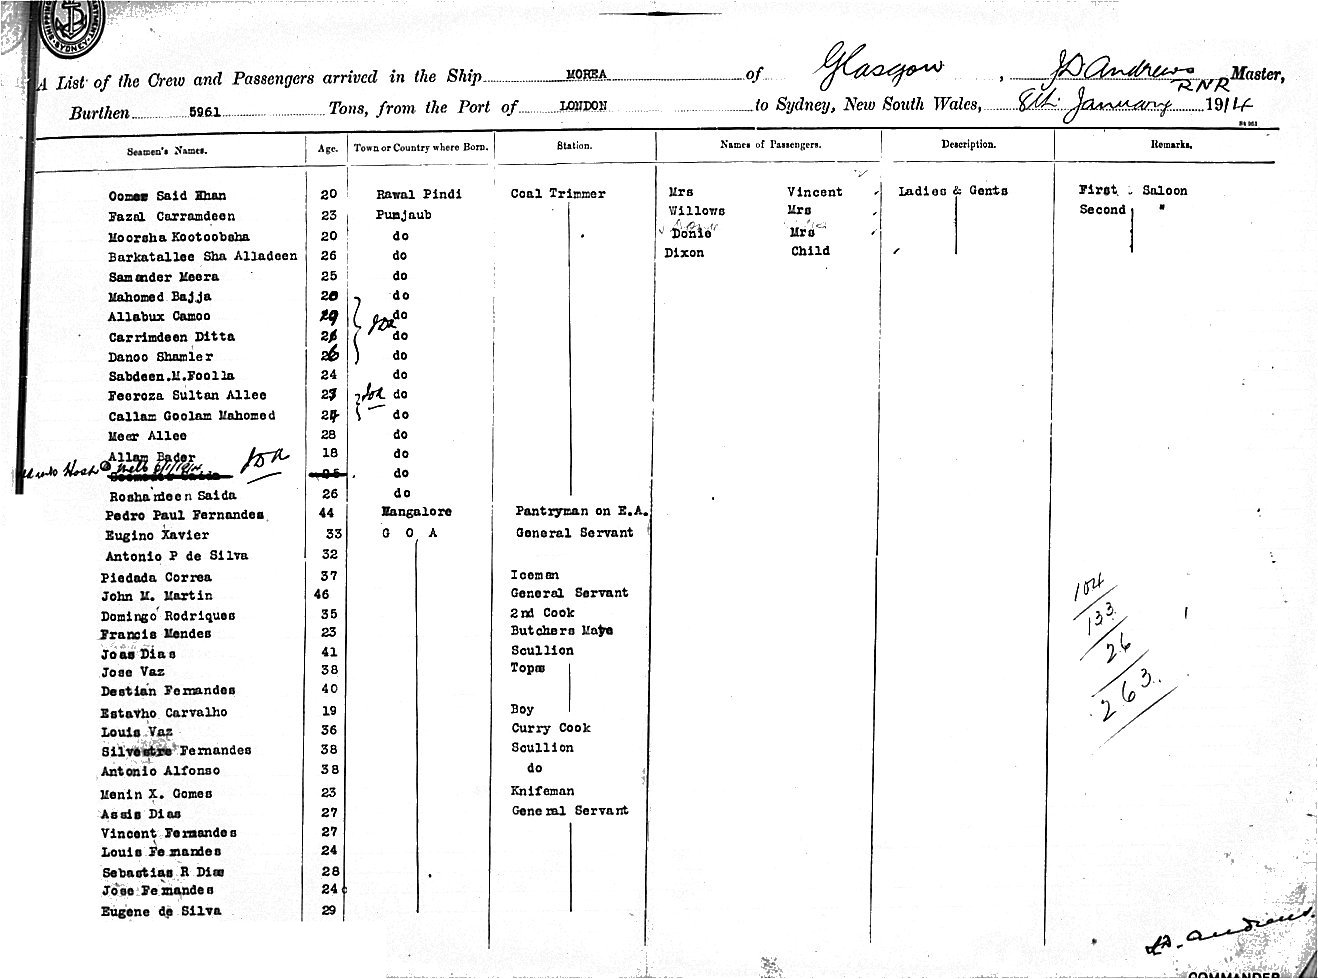 SHIPPING SYDNEY
A List of the Crew and Passengers arrived in the Ship MOREA of Glasgow, JD Andrews RNR Master,
Burthen 5961 Tons, from the Port of LONDON to Sydney, New South Wales, 8th January 1914
Seamen's Names. Age. Town or Country where Born. Station. Names of Passengers. Description. Remarks.
Oomer Said Khan 20 Rawal Pindi Coal Trimmer Mrs Vincent Ladies & Gents First Saloon
Fazal Carramdeen 23 Punjaub Willows Mrs Second "
Moorsha Kootoobsha 20 do Donie Mrs
Barkatallee Sha Alladeen 26 do Dixon Child
Samander Meera 25 do
Mahomed Bajja 20 do
Allabux Camoo 29 do
Carrimdeen Ditta 26 do
Danoo Shamier 26 do
Sabdeen.M.Foolla 24 do
Feeroza Sultan Allee 27 do
Callam Goolam Mahomed 24 do
Meer Allee 28 do
Allam Bader 18 do
JDA do
Roshandeen Saida 26 do
Pedro Paul Fernandes 44 Mangalore Pantryman on E.A.
Eugino Xavier 33 G O A General Servant
Antonio P de Silva 32
Piedada Correa 37 Iceman
John M. Martin 46 General Servant
Domingo Rodriques 35 2nd Cook
Francis Mendes 23 Butchers Mate
Joas Dias 41 Scullion
Jose Vaz 38 Topas
Destian Fernandes 40
Estavho Carvalho 19 Boy
Louis Vaz 36 Curry Cook
Silvestre Fernandes 38 Scullion
Antonio Alfonso 38 do
Menin X. Gomes 23 Knifeman
Assis Dias 27 General Servant
Vincent Fernandes 27
Louis Fernandes 24
Sebastias R Dias 28
Jose Fernandes 24
Eugene de Silva 29
104
133
26
263
JD. Andrews.
COMMANDER